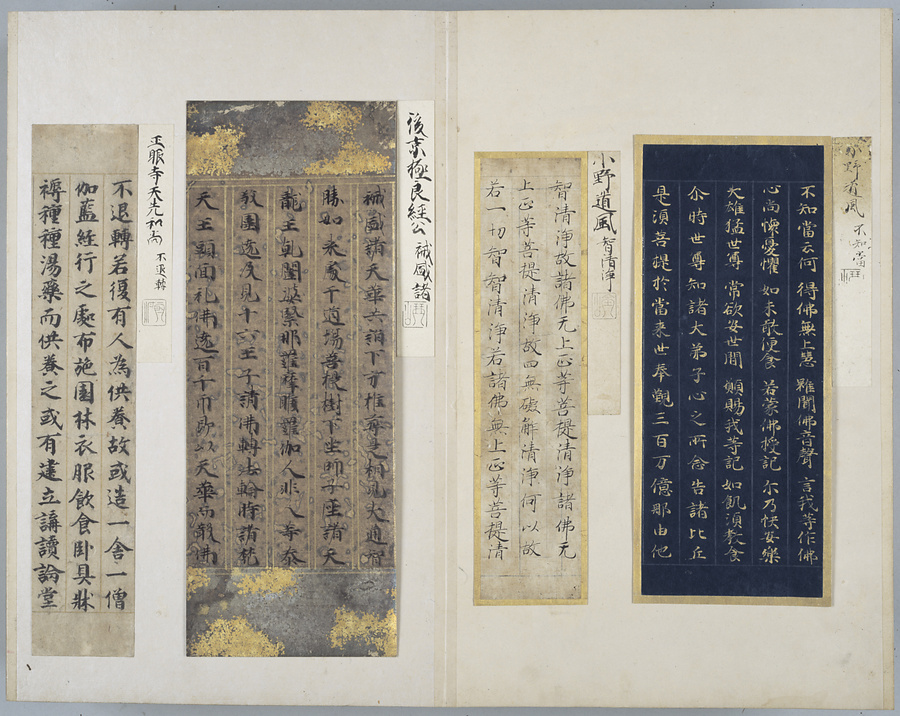 小野道風 不知當
不知當云何 得佛無上慧 雖聞佛音聲 言我等作佛
心尚懷憂懼 如未敢便食 若蒙佛授記 尓乃快安樂
大雄猛世尊 常欲安世間 願賜我等記 如飢須教食
尒時世尊知諸大弟子心之所念告諸比丘
是須菩提於當来世奉覲三百万億那由他
小野道風 智清淨
智清淨故諸佛无上正等菩提清淨諸佛无
上正等菩提清淨故四無礙解清淨何以故
若一切智智清淨若諸佛無上正等菩提清
後京極良經公 祴威諸
祴威諸天華
勝如来處于道場菩提樹下坐師子座諸天
龍王乹闥婆緊那羅摩睺羅伽人非人等恭
敬圍遶及見十六王子請佛轉法輪時諸梵
天王頭面礼佛遶百千帀即以天華而散佛
玉眼寺天光和尚 不退轉
不退轉若復有人為供養故或造一舍一僧
伽藍經行之處布施園林衣服飲食臥具牀
褥種種湯藥而供養之或有建立講讀論堂